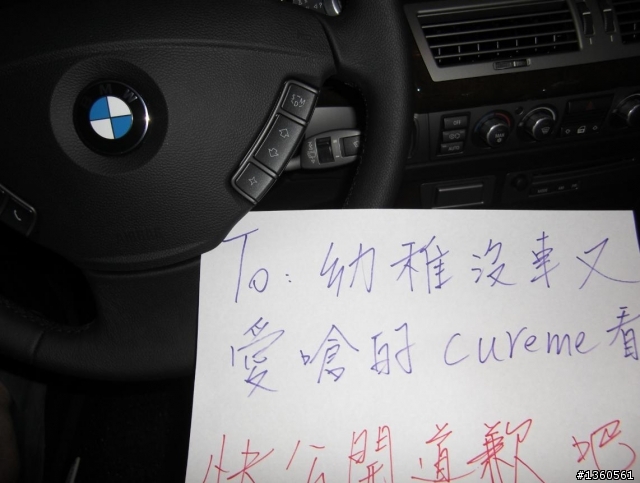 BMW
To: 幼稚沒車又
愛嗆的 cureme 看
快公開道歉吧
#1360561